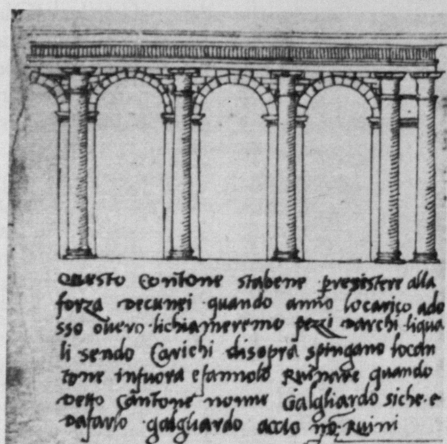 Questo Contone stabene pregistere alla
forza decunei quando anno locarico ado
sso overo lichiameremo pezzi darchi liqua
li sendo Carichi disopra spingano locan
tone infuora efannolo Ruinare quando
detto Cantone nonne Galgliardo siche e
dafarlo galgliardo accio nō Ruini